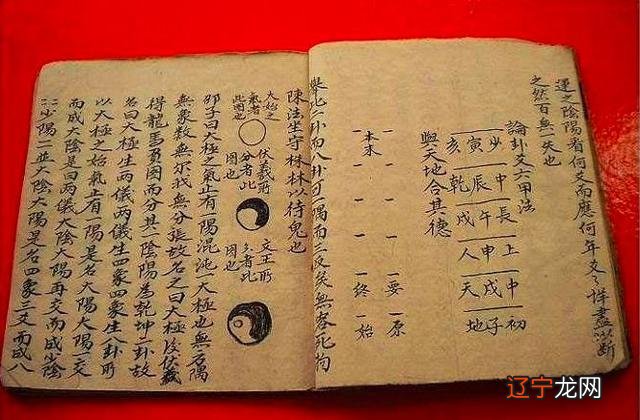 運之陰陽看何爻而應何年爻々詳盡以斷
之然百無一失也
論卦爻六甲法
少 中 長 上 中 初
寅 辰 午 申 戌 子
亥 乾 戌 人 天 地
與天地合其德
一要 一原
一終 一始
本末
舉此二卦而八卦可一隅而三反矣無
陳法坐守株林以待兔也
大始之氣者此圖也
伏羲所分者此圖也
文王所分者此圖也
邵子曰大極之氣止有一陽混沌大極也無方隅
無象数無尔我無分張故名之曰大極後伏羲
得龍馬負圖而分其一陰陽為乾坤二卦故
名曰大極生两儀两儀生四象四象生八卦所
以大極之始氣止有一陽是名大陽大陽一爻
而成大陰是曰两儀大陰大陽再交而成少陰
少陽一並大陰大陽是名四象三爻而成八
辽宁龙网